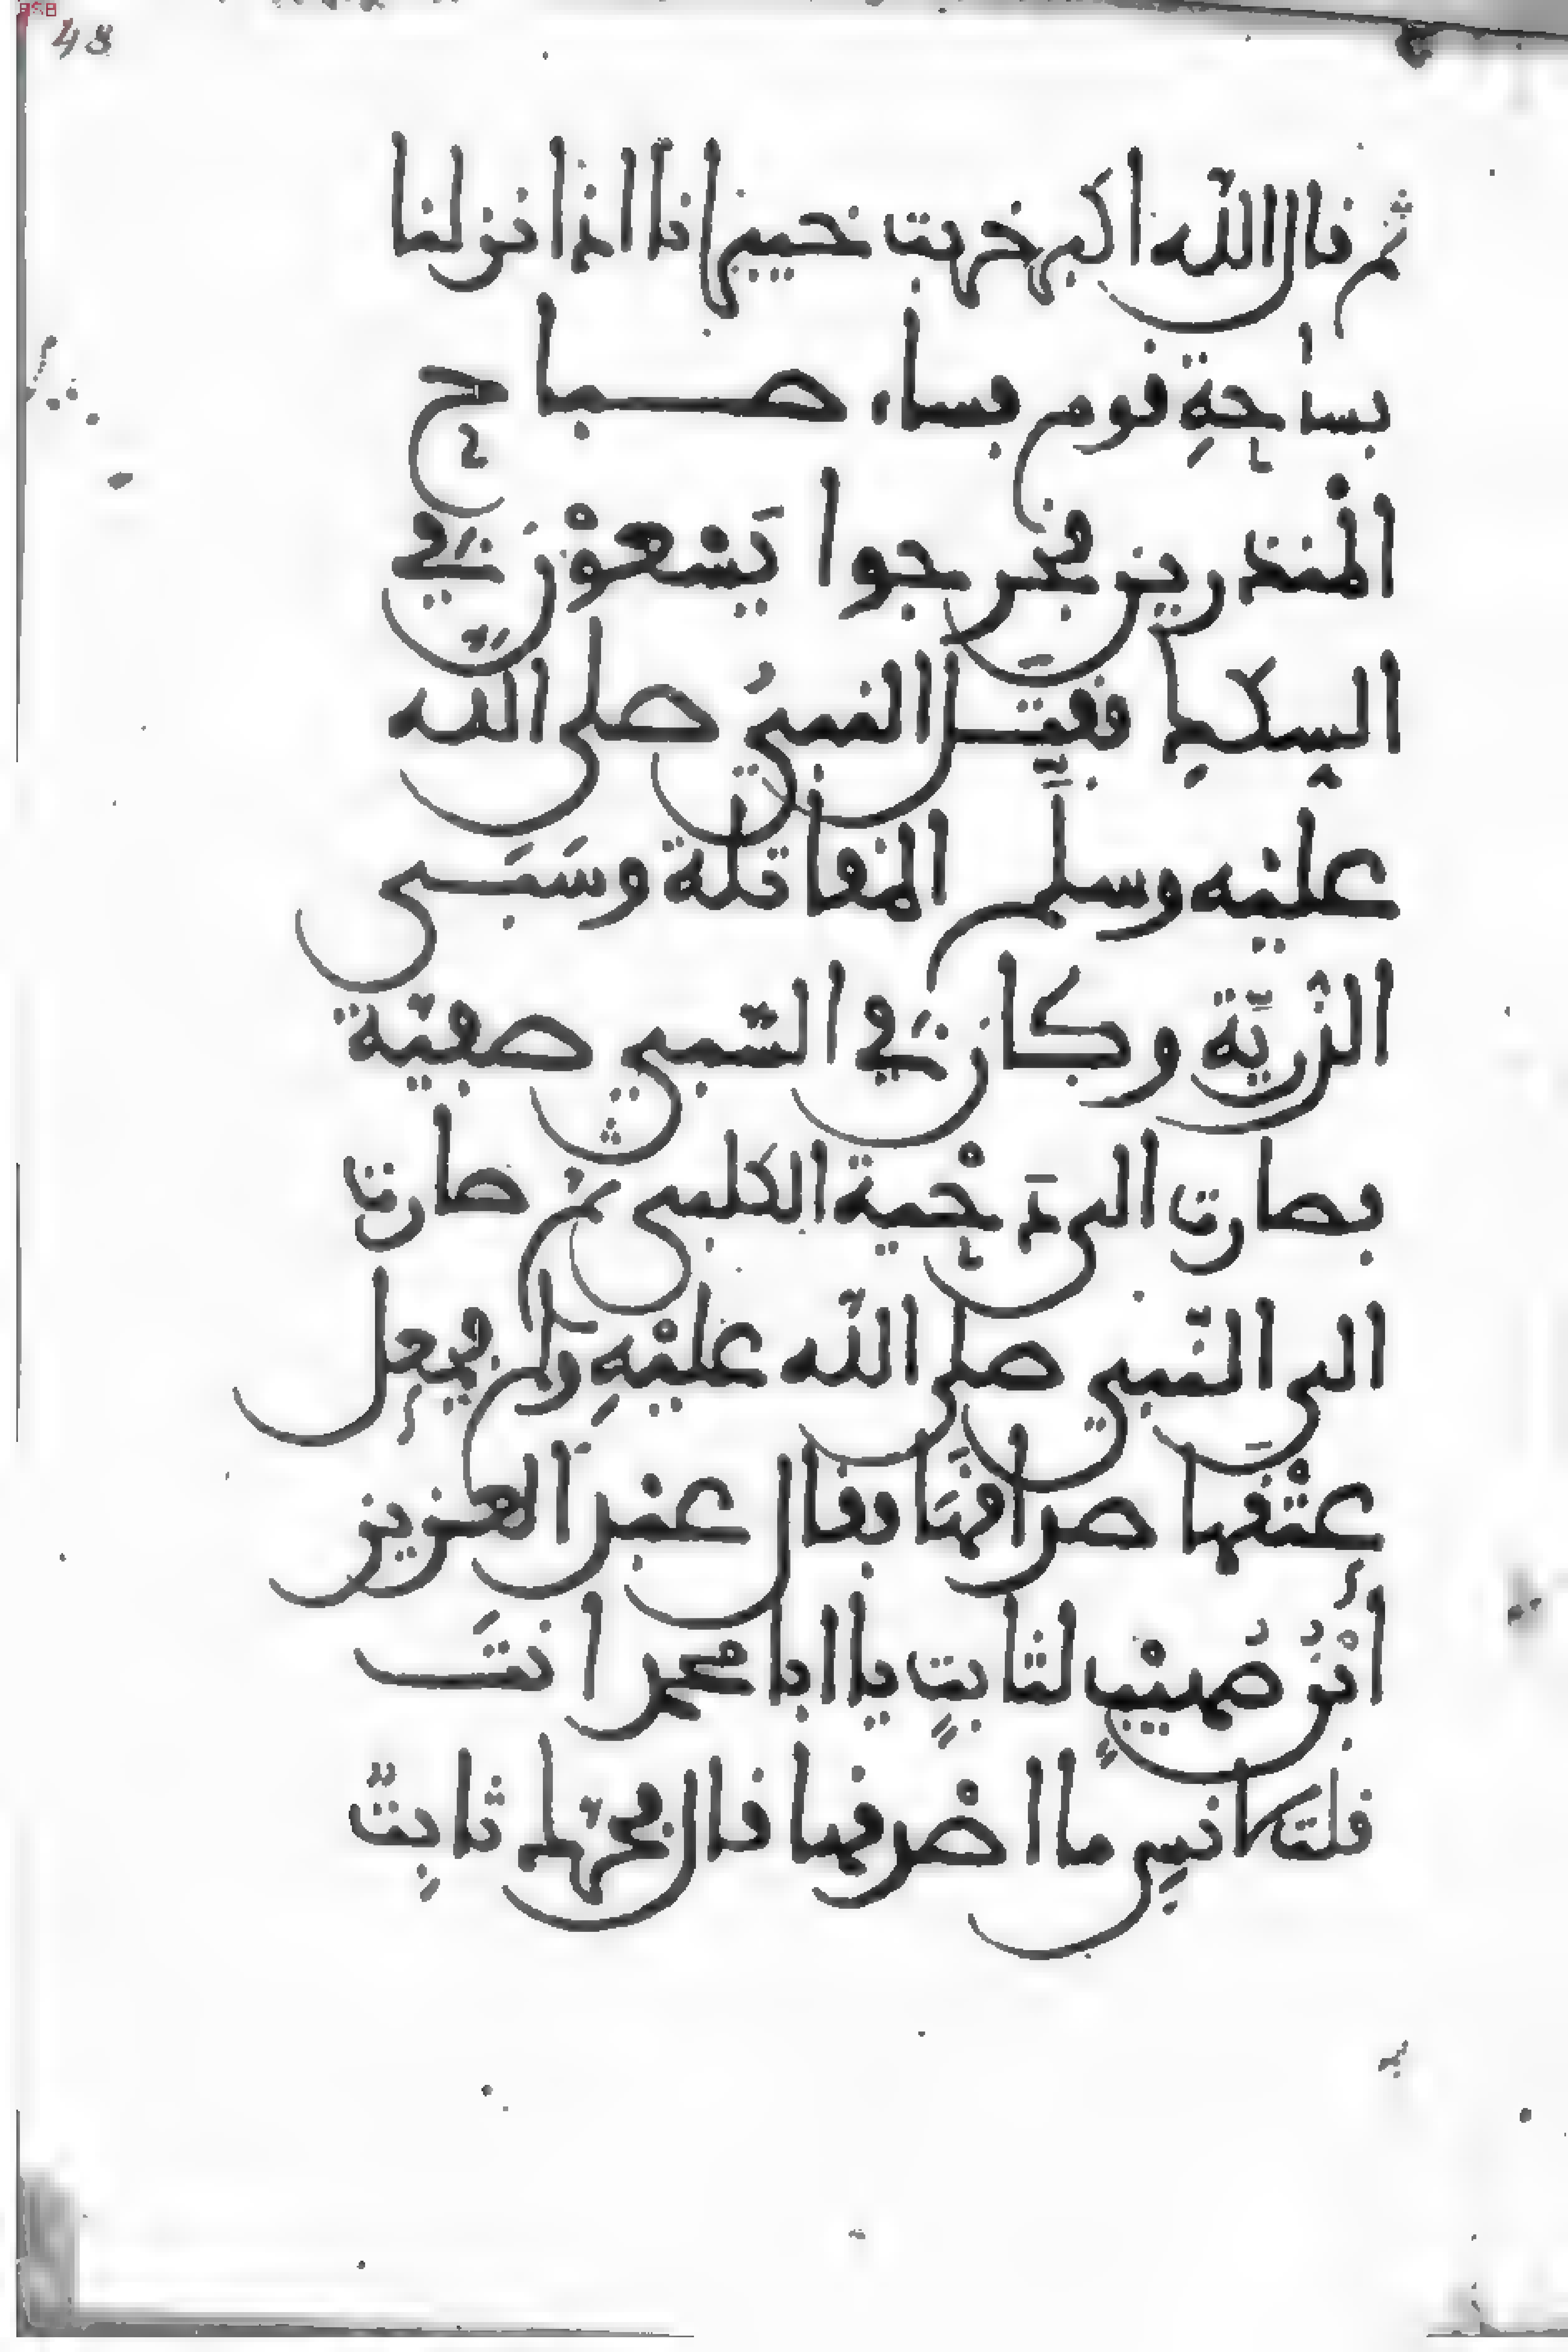 48
ثم قال الله اكبر خربت خيبر انا اذا نزلنا
بساحةِ قوم فساء صباح
المنذرين فخرجوا يَسْعَوْنَ في
السِكك فقتّل النبيُّ صلى الله
عليْه وسلَّم المقاتلة وسَبَى
الذُّرِيَّة وكانَ في السَّبي صفيّة
فصارت الى دَحْية الكلبي ثم صارت
الى النَّبي صلى الله عليْهِ وسلم فجعل
عتْقها صداقَهَا فقال عبد العزيز
أبْنُ صُهيْبٍ لثابتٍ يا ابا محمد انتَ
قلتَ لانسِ ما اصْدقها قال مهرها ثابِتٌ